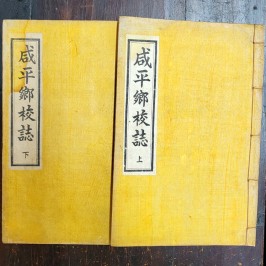 咸平鄉校誌
上
咸平鄉校誌
下